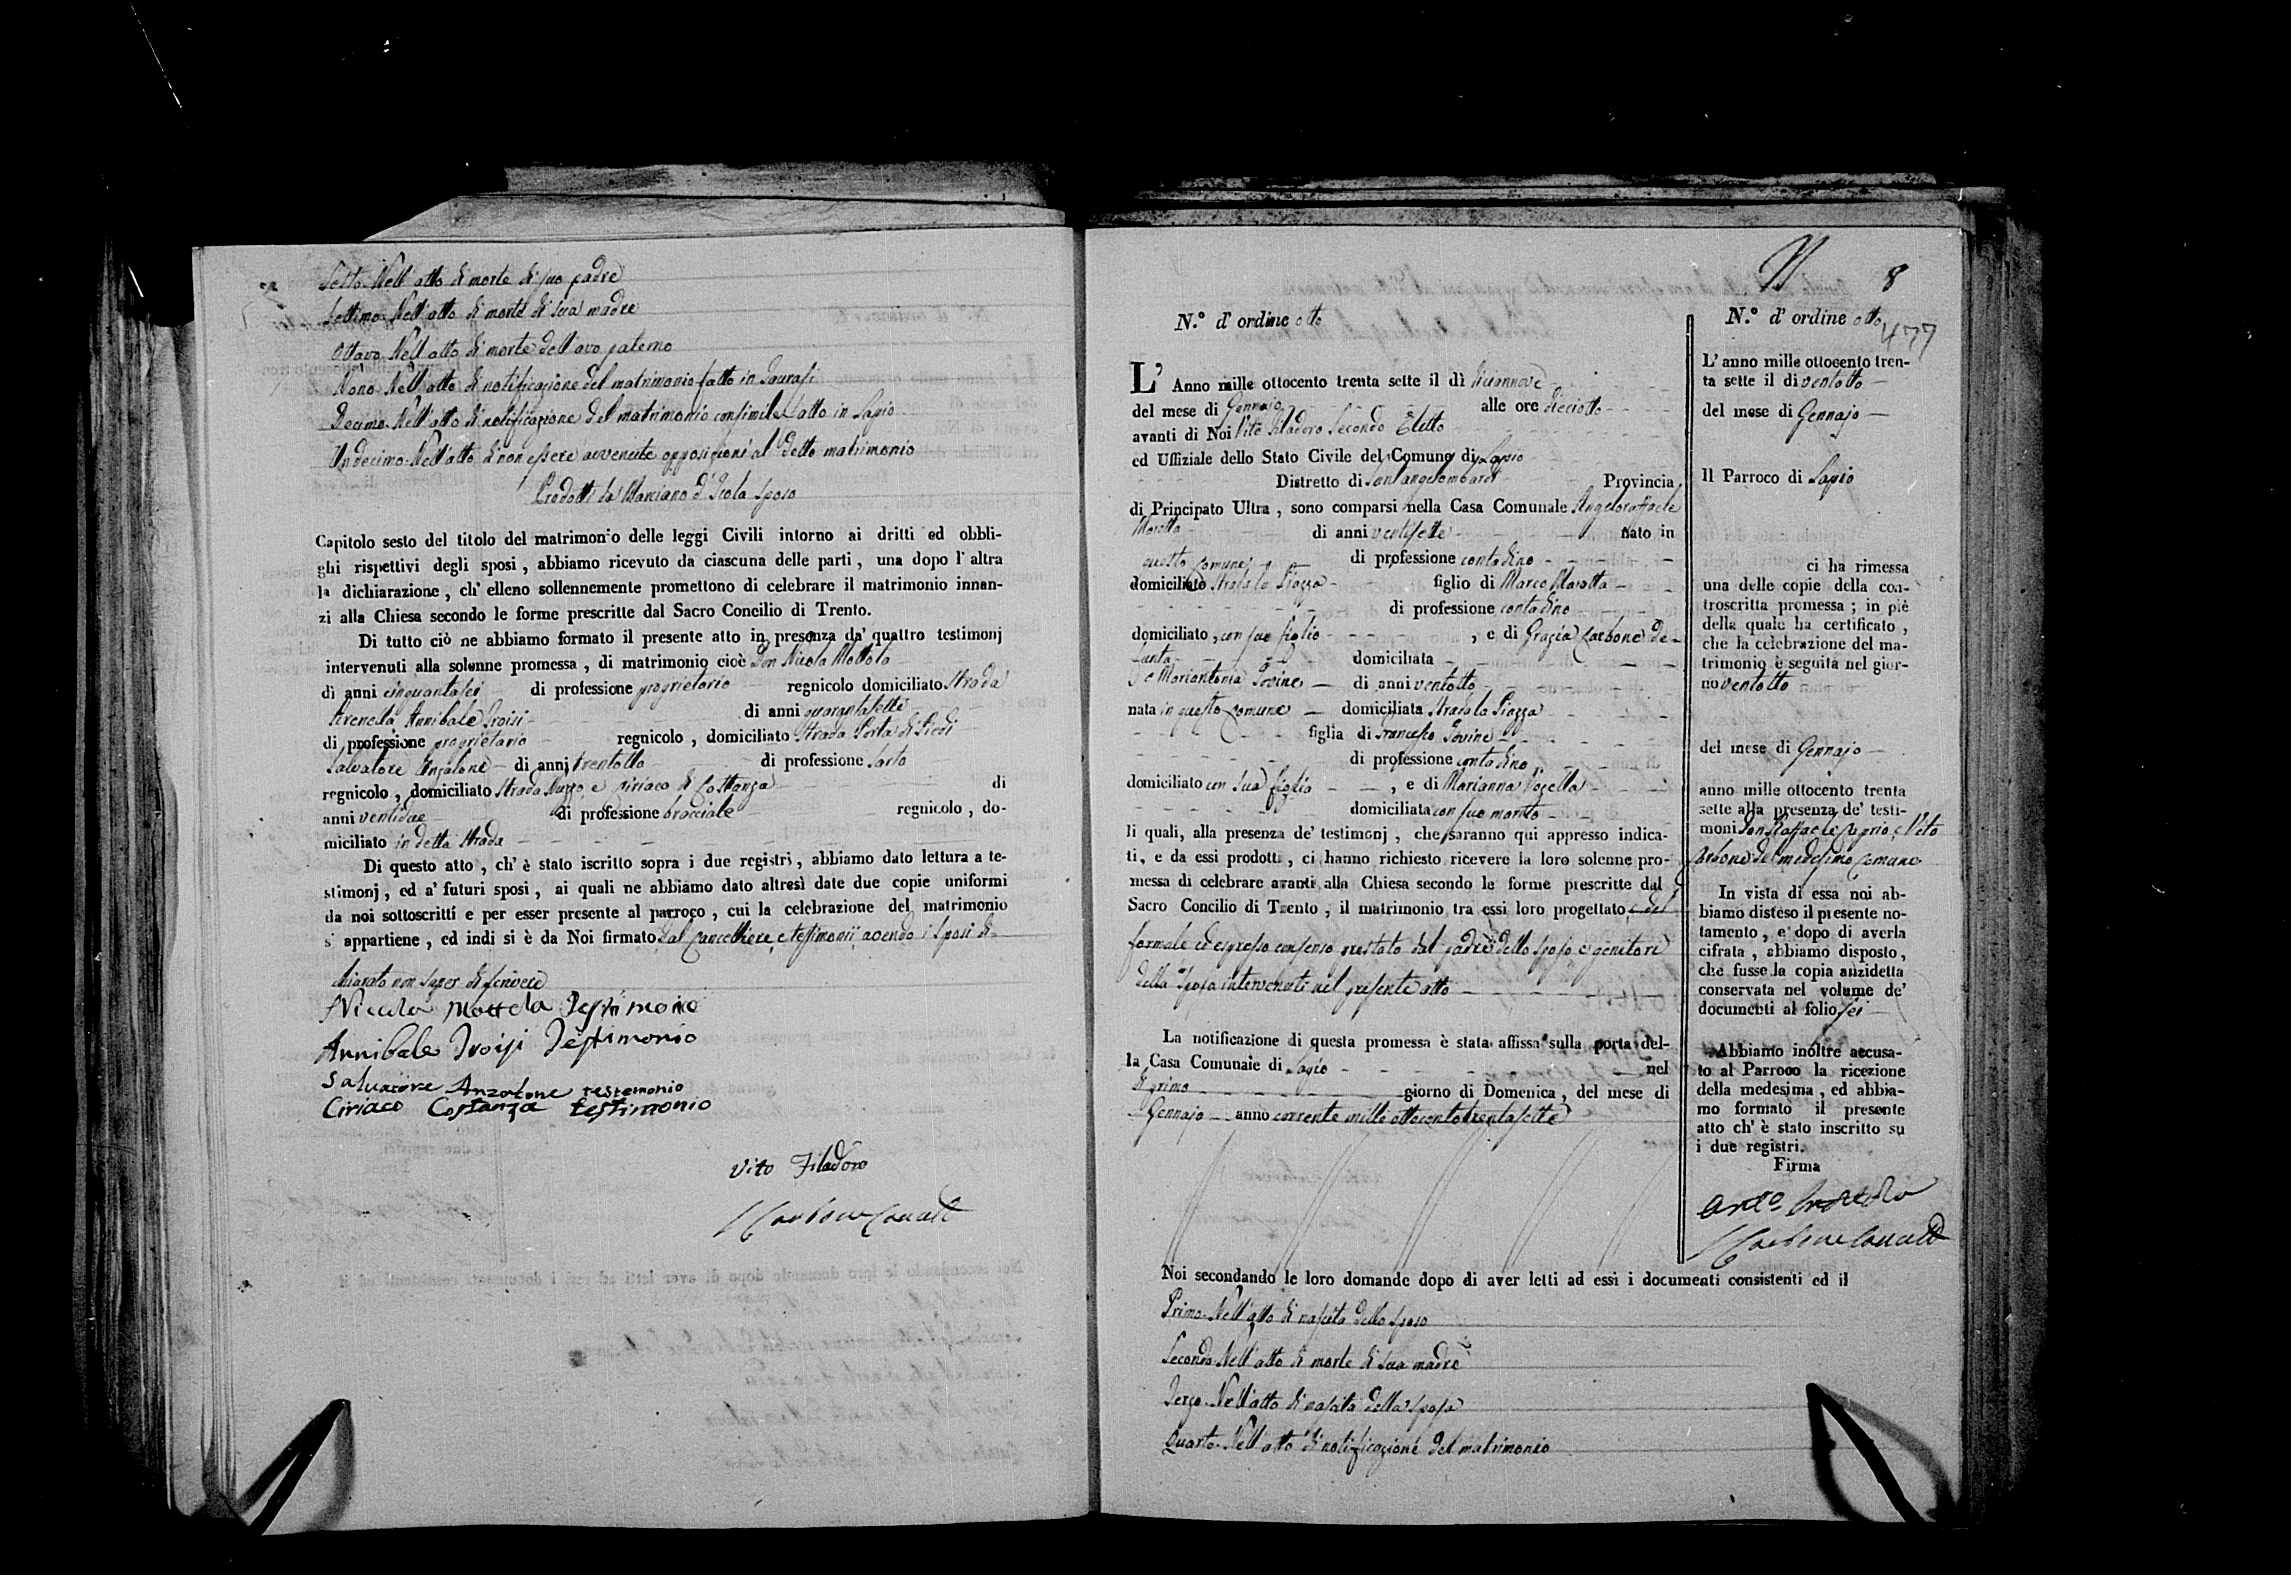 Sesto. Nell'atto di morte di suo padre
Settimo. Nell'atto di morte di sua madre
Ottavo. Nell'atto di morte dell'avo paterno
Nono. Nell'atto di notificazione del matrimonio fatto in Taurasi
Decimo. Nell'atto di notificazione del matrimonio consimile fatto in Lapio
Undecimo. Nell'atto di non essere avvenute opposizioni al detto matrimonio
Prodotti da Marciano d'ICola sposo
Capitolo sesto del titolo del matrimonio delle leggi Civili intorno ai dritti ed obbli-
ghi rispettivi degli sposi, abbiamo ricevuto da ciascuna delle parti, una dopo l'altra
la dichiarazione, ch'elleno sollennemente promettono di celebrare il matrimonio innan-
zi alla Chiesa secondo le forme prescritte dal Sacro Concilio di Trento.
Di tutto ciò ne abbiamo formato il presente atto in presenza da' quattro testimonj
intervenuti alla solenne promessa, di matrimonio cioè Don Nicola Mottola
di anni cinquantasei di professione proprietario regnicolo domiciliato Strada
Annibale Troisi di anni quarantasette
di professione proprietario regnicolo, domiciliato Strada Porta di Piedi
Salvatore Anzalone di anni trentotto di professione Sarto
regnicolo, domiciliato Strada e Ciriaco di Costanza di
anni ventidue di professione bracciale regnicolo, do-
miciliato in detta Strada
Di questo atto, ch'è stato iscritto sopra i due registri, abbiamo dato lettura a te-
stimonj, ed a' futuri sposi, ai quali ne abbiamo dato altresì date due copie uniformi
da noi sottoscritti e per esser presente al parroco, cui la celebrazione del matrimonio
s' appartiene, ed indi si è da Noi firmato, dal Cancelliere, e testimonii avendo i sposi di-
chiarato non saper di scrivere
Nicola Mottola Testimone
Annibale Troisi Testimonio
Salvatore Anzalone testemonio
Ciriaco Costanza testimonio
Vito Filadoro
8
N.° d'ordine otto
L'Anno mille ottocento trenta sette il dì diciannove
del mese di Gennajo alle ore dieciotto
avanti di Noi Vito Filadoro Secondo Eletto
ed Uffiziale dello Stato Civile del Comune di Lapio
Distretto di Santangelombardi Provincia
di Principato Ultra, sono comparsi nella Casa Comunale Angeloraffaele
Morotta di anni ventisette nato in
questo Comune di professione contadino
domiciliato Strada la Piazza figlio di Marco Morotta
di professione contadino
domiciliato, con suo figlio, e di Grazia Carbone de-
funta domiciliata
e Mariantonia Iovine di anni ventotto
nata in questo Comune domiciliata Strada la Piazza
figlia di Francesco Iovine
di professione contadino
domiciliato con sua figlia, e di Marianna
domiciliata con suo marito
li quali, alla presenza de' testimonj, che saranno qui appresso indica-
ti, e da essi prodotti, ci hanno richiesto ricevere la loro solenne pro-
messa di celebrare avanti alla Chiesa secondo le forme prescritte dal
Sacro Concilio di Trento, il matrimonio tra essi loro progettato, e del
formale ed espresso consenso prestato dal padre dello sposo e genitori
della sposa intervenuti nel presente atto
La notificazione di questa promessa è stata affissa sulla porta del-
la Casa Comunale di Lapio nel
dì primo giorno di Domenica, del mese di
Gennajo anno corrente mille ottocento trentasette
Noi secondando le loro domande dopo di aver letti ad essi i documenti consistenti ed il
Primo. Nell'atto di nascita dello sposo
Secondo. Nell'atto di morte di sua madre
Terzo. Nell'atto di nascita della sposa
Quarto. Nell'atto di notificazione del matrimonio
N.° d'ordine otto
477
L'anno mille ottocento tren-
ta sette il di ventotto
del mese di Gennajo
Il Parroco di Lapio
ci ha rimessa
una delle copie della con-
troscritta promessa; in piè
della quale ha certificato,
che la celebrazione del ma-
trimonio è seguita nel gior-
no ventotto
del mese di Gennajo
anno mille ottocento trenta
sette alla presenza de' testi-
moni Don Raffaele Caprio, e Vito
Carbone del medesimo Comune
In vista di essa noi ab-
biamo disteso il presente no-
tamento, e dopo di averla
cifrata, abbiamo disposto,
che fusse la copia anzidetta
conservata nel volume de'
documenti al folio sei
Abbiamo inoltre accusa-
to al Parroco la ricezione
della medesima, ed abbia-
mo formato il presente
atto ch'è stato inscritto su
i due registri.
Firma